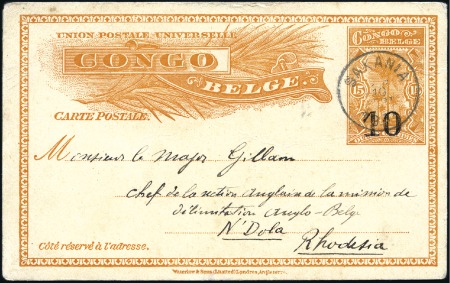 UNION POSTALE UNIVERSELLE
CONGO
BELGE
CARTE POSTALE.
CONGO
BELGE
SAKANIA
15
10
Monsieur le Major Gillam
Chef de la section Anglaise de la mission de
délimitation Anglo-Belge
N'Dola
Rhodesia
Côté réservé à l'adresse.
Waterlow & Sons Limited, Londres, Angleterre.